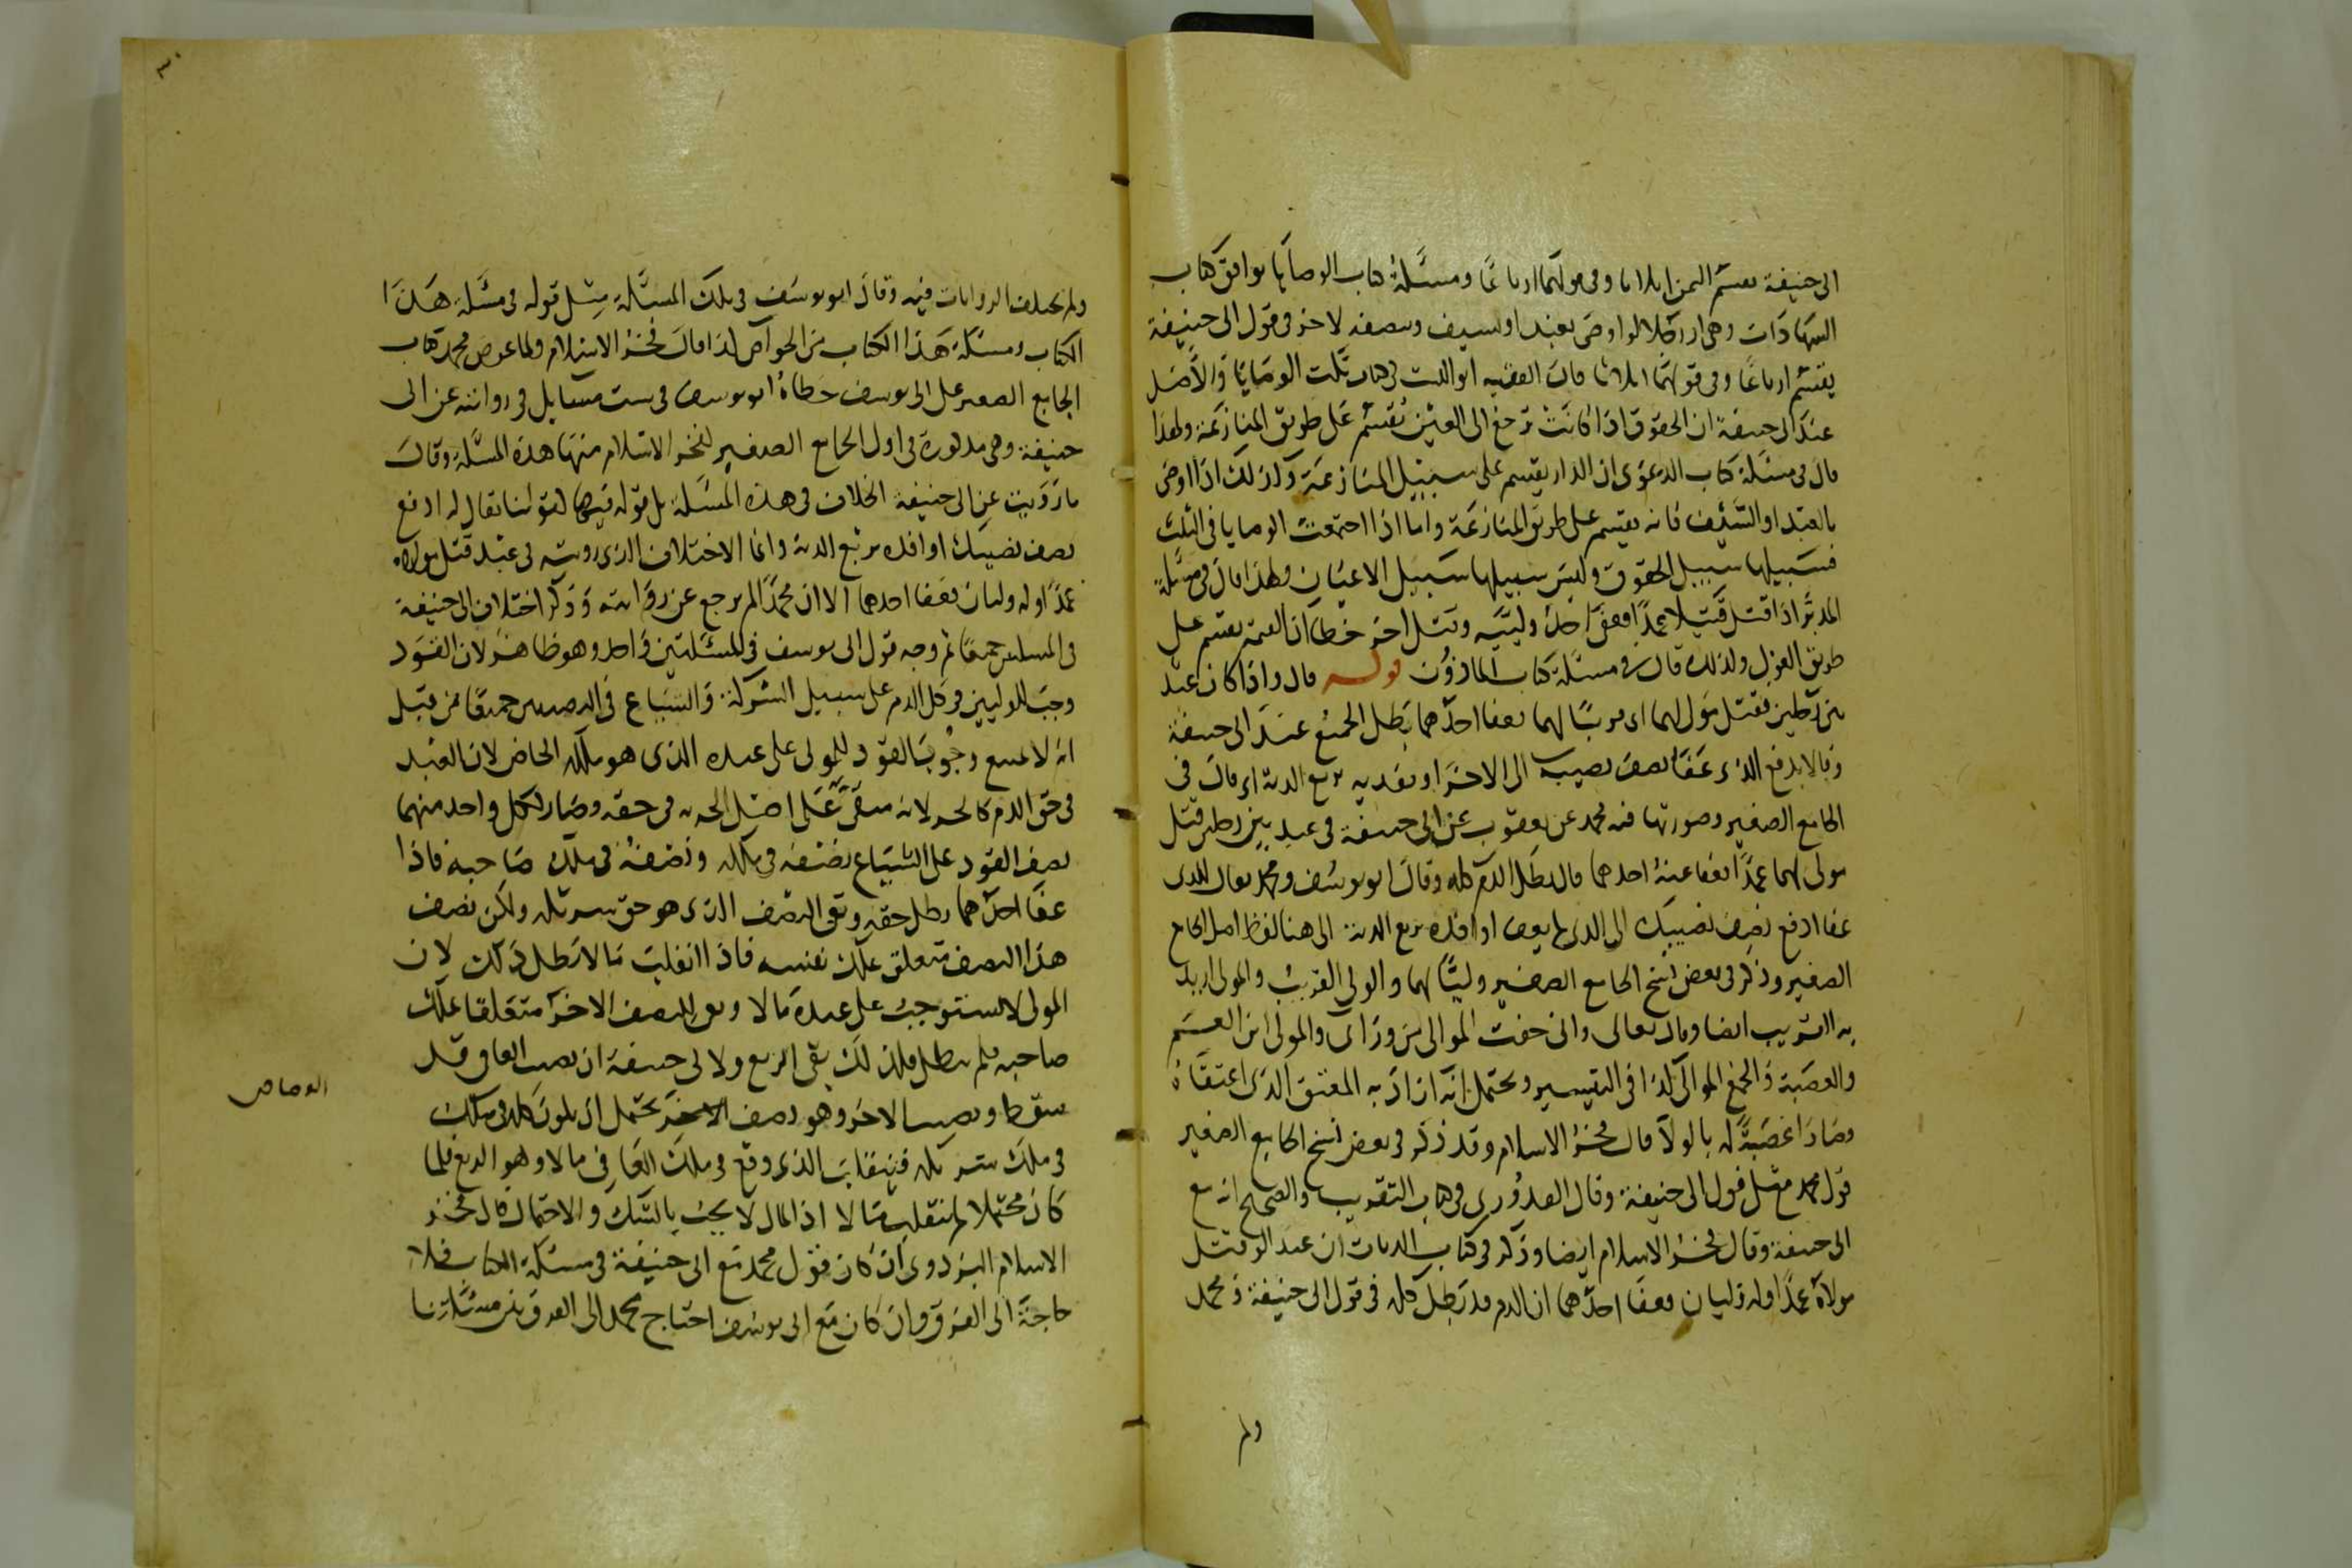 ابى حنيفة يقسم الثمن اثلاثا وفى قولهما ارباعا ومسئلة كتاب الوصايا توافق كتاب
الشهادات وهى اذا لو اوصى بعبد او سيف ونصفه لاخر فى قول ابى حنيفة
يقسم ارباعا وفى قولهما اثلاثا قال الفقيه ابو الليث فى كتاب نكت الوصايا والاصل
عند ابى حنيفة ان الحقوق اذا كانت ترجع الى العين تقسم على طريق المنازعة ولهذا
قال فى مسئلة كتاب الدعوى ان الدار يقسم على سبيل المنازعة وكذلك اذا اوصى
بالعبد او السيف فانه يقسم على طريق المنازعة واما اذا اجتمعت الوصايا فى الثلث
فسبيلها سبيل الحقوق وليس سبيلها سبيل الاعيان ولهذا قال فى مسئلة
المدبر اذا قتل قتيلا عمدا فعفى احد ولييه وقتل اخر خطأ ان القيمة تقسم على
طريق العول ولذلك قال فى مسئلة كتاب الماذون قوله قال واذا كان عبد
بين رجلين فقتل مولى لهما اى قريبا لهما فعفا احدهما بطل الجميع عند ابى حنيفة
وقالا يدفع الذى عفا نصف نصيبه الى الاخر او يفديه بربع الدية اى قال فى
الجامع الصغير وصورتها فيه محمد عن يعقوب عن ابى حنيفة فى عبد بين رجلين قتل
مولى لهما عمدا فعفا عنه احدهما قال بطل الدم كله وقال ابو يوسف ومحمد يقال للذى
عفا ادفع نصف نصيبك الى الذى لم يعف او افده بربع الدية الى هنا لفظ اصل الجامع
الصغير وذكر فى بعض نسخ الجامع الصغير وليا لهما والولى القريب والمولى اريد
به القريب ايضا وقال تعالى وانى خفت الموالى من وراى والمولى ابن العم
والعصبة والجمع الموالى كذا فى التفسير ويحتمل انه اراد به المعتق الذى اعتقاه
وصارا عصبة له بالولا قال فخر الاسلام وقد ذكر فى بعض نسخ الجامع الصغير
قول محمد مثل قول ابى حنيفة وقال القدورى فى كتاب التقريب والصحيح انه مع
ابى حنيفة وقال فخر الاسلام ايضا وذكر فى كتاب الديات ان عبدا لو قتل
مولاه عمدا وله وليان فعفا احدهما ان الدم قد بطل كله فى قول ابى حنيفة ومحمد
ولم
ولم يختلف الروايات فيه وقال ابو يوسف فى تلك المسئلة مثل قوله فى مسئلة هذا
الكتاب ومسئلة هذا الكتاب من الخواص كذا قال فخر الاسلام ولما عرض محمد كتاب
الجامع الصغير على ابى يوسف خطاه ابو يوسف فى ست مسايل فى روايته عن ابى
حنيفة وهى مذكورة فى اول الجامع الصغير لفخر الاسلام منها هذه المسئلة وقال
ما رويت عن ابى حنيفة الخلاف فى هذه المسئلة بل قوله فيها كقولنا يقال له ادفع
نصف نصيبك او افده بربع الدية وانما الاختلاف الذى رويته فى عبد قتل مولاه
عمدا وله وليان فعفا احدهما الا ان محمدا لم يرجع عن روايته وذكر اختلاف ابى حنيفة
فى المسئلتين جميعا ثم وجه قول ابى يوسف فى المسئلتين واحد وهو ظاهر لان القود
وجب للوليين فى كل الدم على سبيل الشركة والشياع فى النصفين جميعا من قبل
انه لا يمنع وجوب القود للمولى على عبده الذى هو ملكه الخاص لان العبد
فى حق الدم كالحر لانه مبقى على اصل الحرية فى حقه وصار لكل واحد منهما
نصف القود على الشياع نصفه فى ملكه ونصفه فى ملك صاحبه فاذا
عفا احدهما بطل حقه وبقى النصف الذى هو حق شريكه ولكن نصف
هذا النصف متعلق بملك نفسه فاذا انقلب مالا بطل ذلك لان
المولى لا يستوجب على عبده مالا وبقى النصف الاخر متعلقا بملك
صاحبه فلم يبطل فلذلك بقى الربع ولابى حنيفة ان نصيب العافى قد
سقط ونصيب الاخر وهو نصف الاخر يحتمل ان يكون كله فى ملك
فى ملك شريكه فينقلب الذى وقع فى ملك العافى مالا وهو الربع فلما
كان محتملا لم ينقلب مالا اذ المال لا يجب بالشك والاحتمال قال فخر
الاسلام البزدوى ان كان قول محمد مع ابى حنيفة فى مسئلة الكتاب فلا
حاجة الى الفرق وان كان مع ابى يوسف احتاج محمد الى الفرق بين مسئلتنا